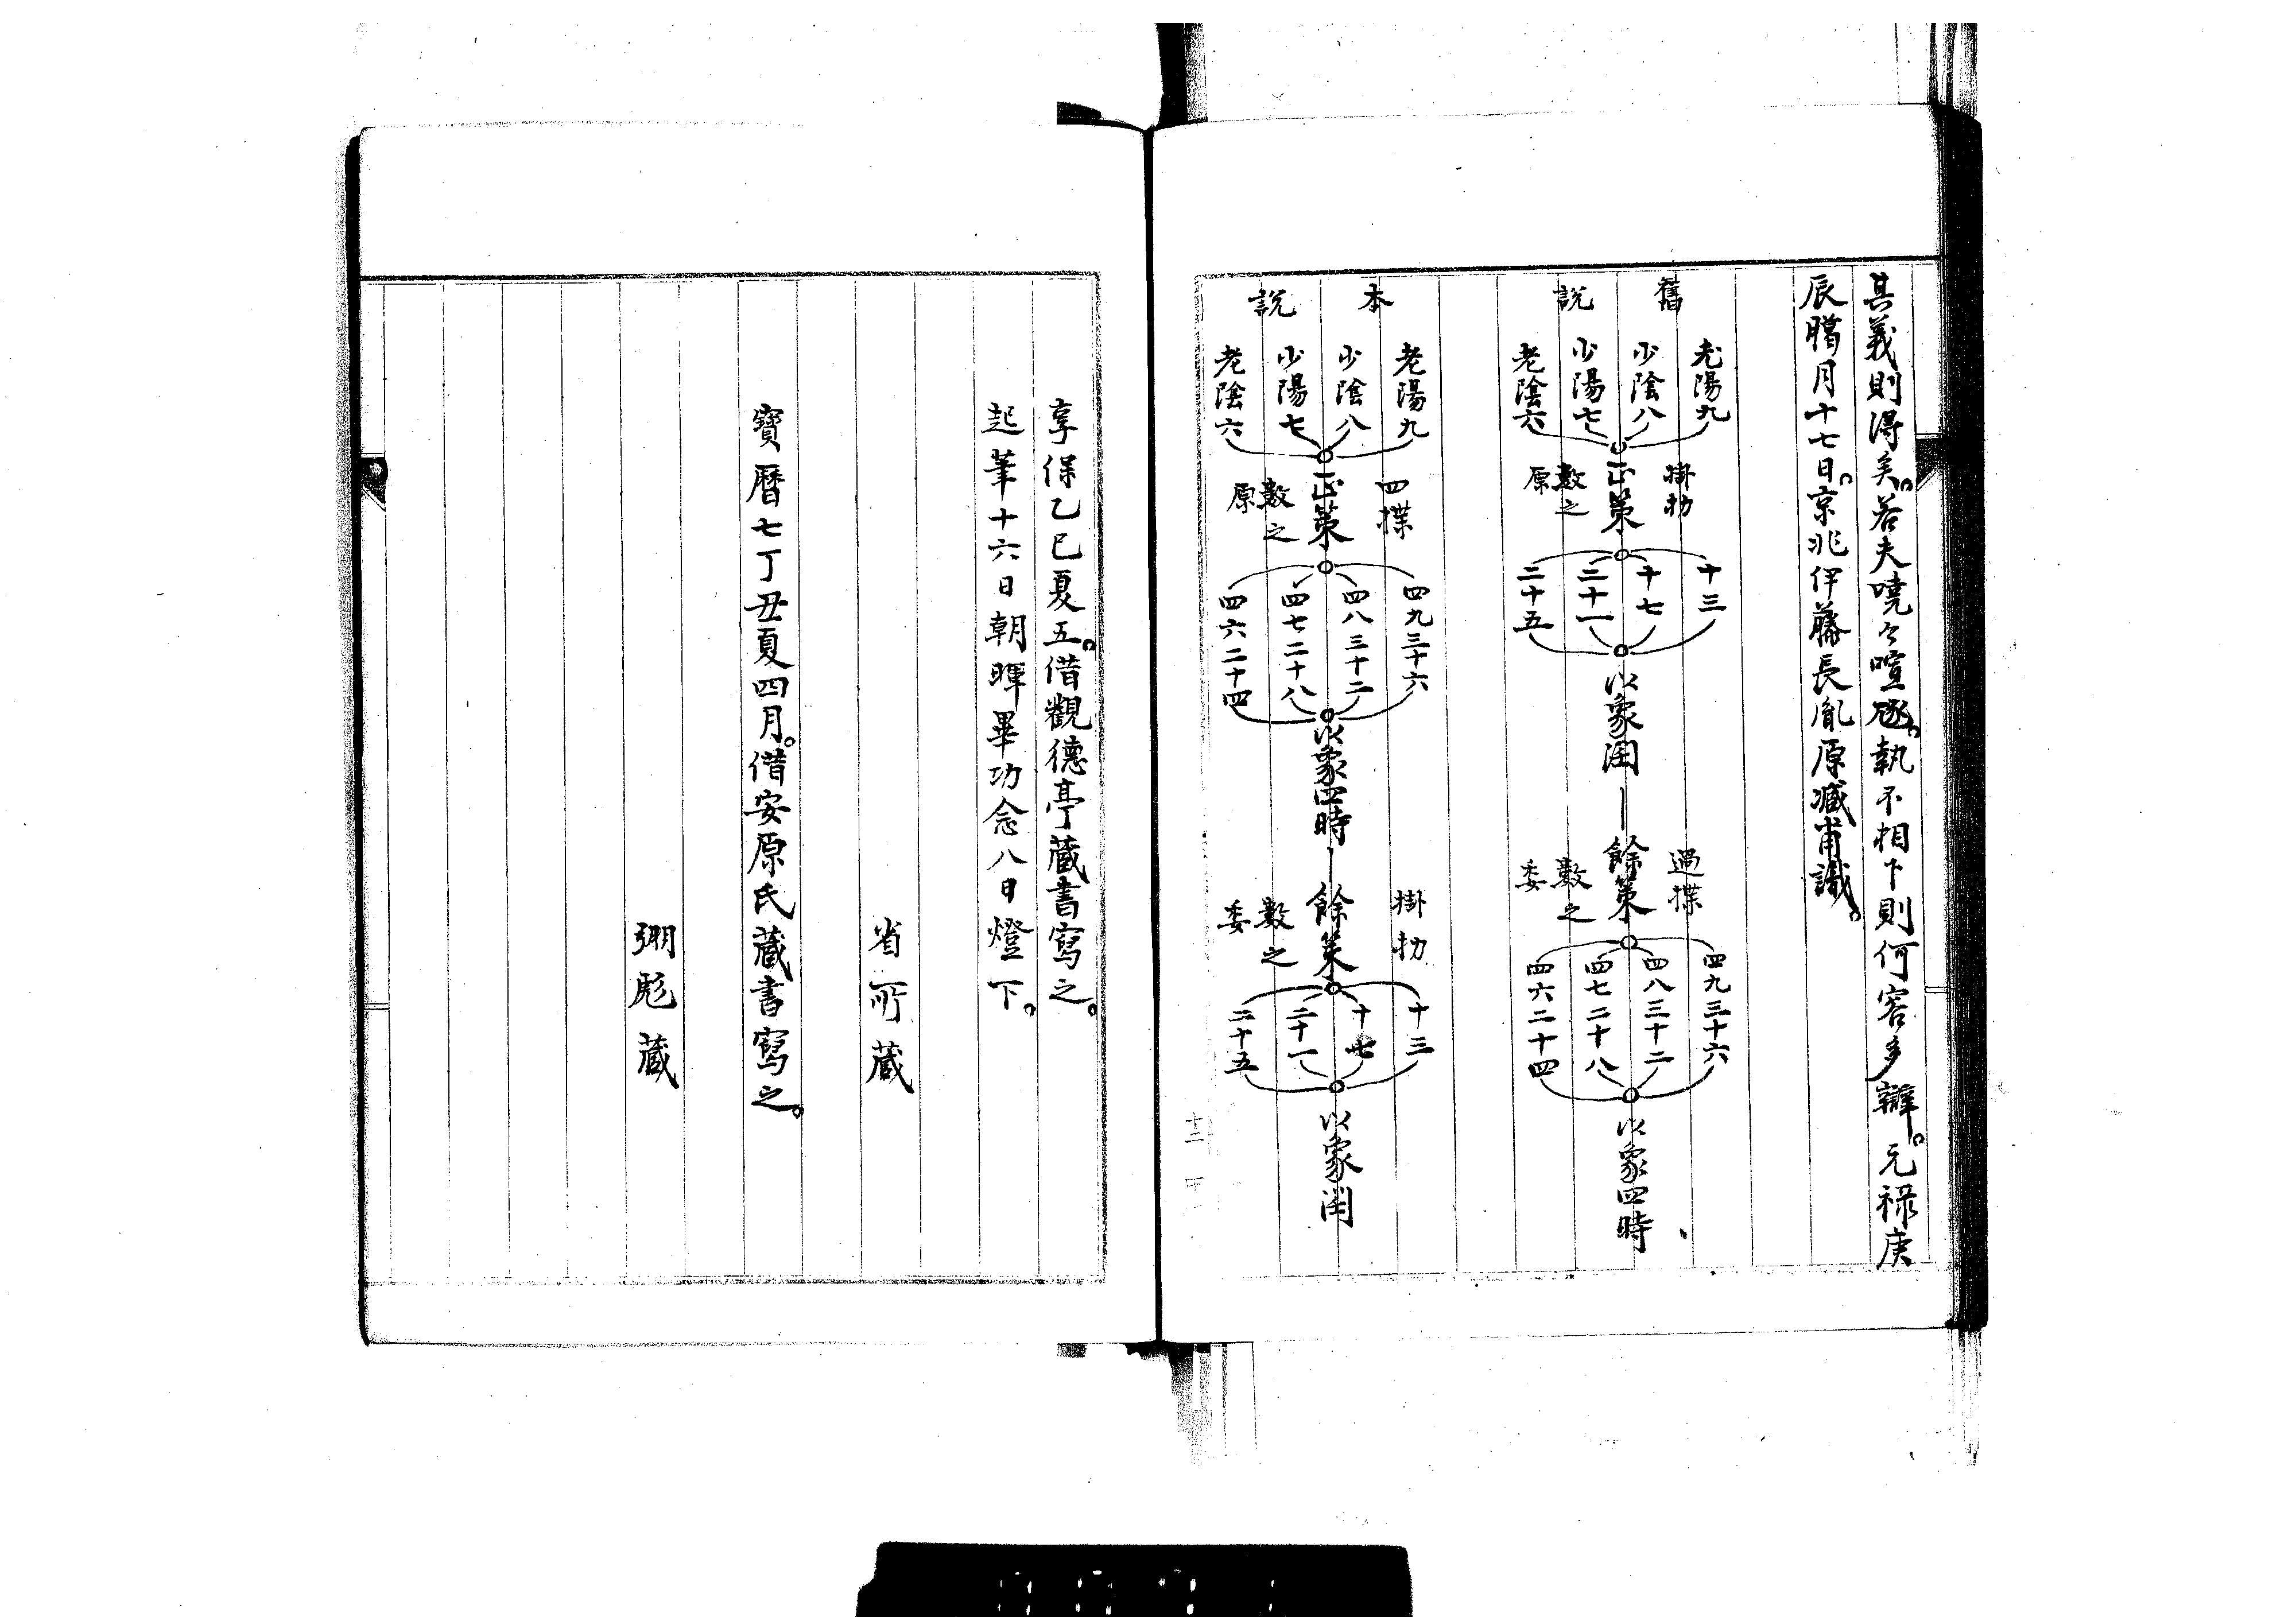 其義則得矣。若夫嘵々喧豗。執不相下則何容多辯。元禄庚
辰臈月十七日。京兆伊藤長胤原藏甫識。
舊說
老陽九
少陰八
少陽七
老陰六
掛扐
正策
數之原
十三
十七
二十一
二十五
以象閏
過揲
餘策
數之委
四九三十六
四八三十二
四七二十八
四六二十四
以象四時
本說
老陽九
少陰八
少陽七
老陰六
四揲
正策
數之原
四九三十六
四八三十二
四七二十八
四六二十四
以象四時
掛扐
餘策
數之委
十三
十七
二十一
二十五
以象閏
享保乙巳夏五。借觀德亭藏書寫之。
起筆十六日朝暉畢功念八日燈下。
省所藏
寶曆七丁丑夏四月。借安原氏藏書寫之。
弸彪藏